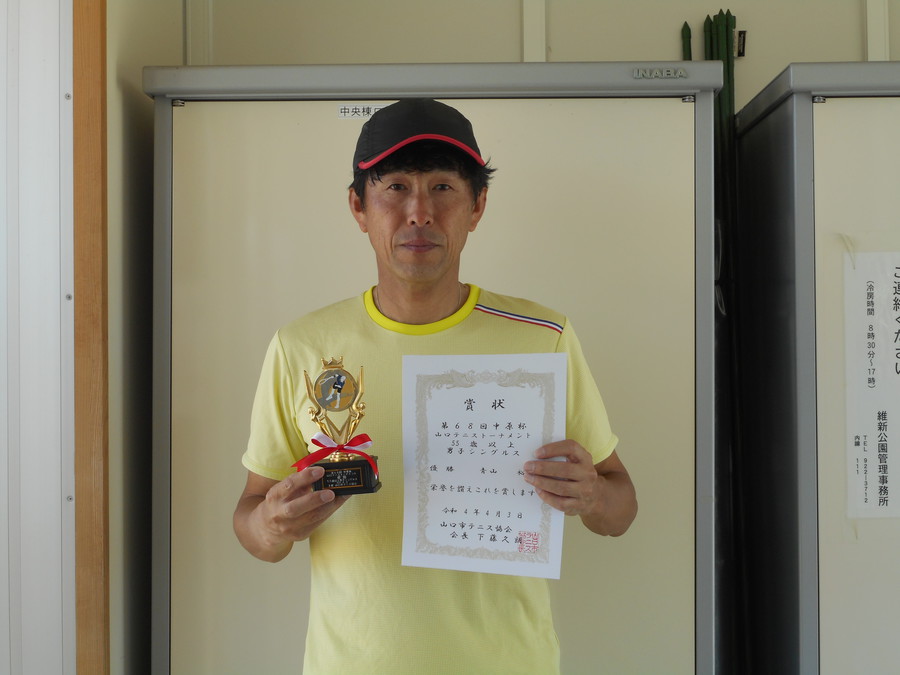 INABA
中央棟
賞状
第68回中原杯
山口テニストーナメント
55歳以上
男子シングルス
優勝 青山
栄誉を讃えこれを賞します
令和4年4月3日
山口市テニス協会
会長 下藤久
ご連絡ください
(冷房時間 8時30分～17時)
維新公園管理事務所
TEL 922-3712
内線 111